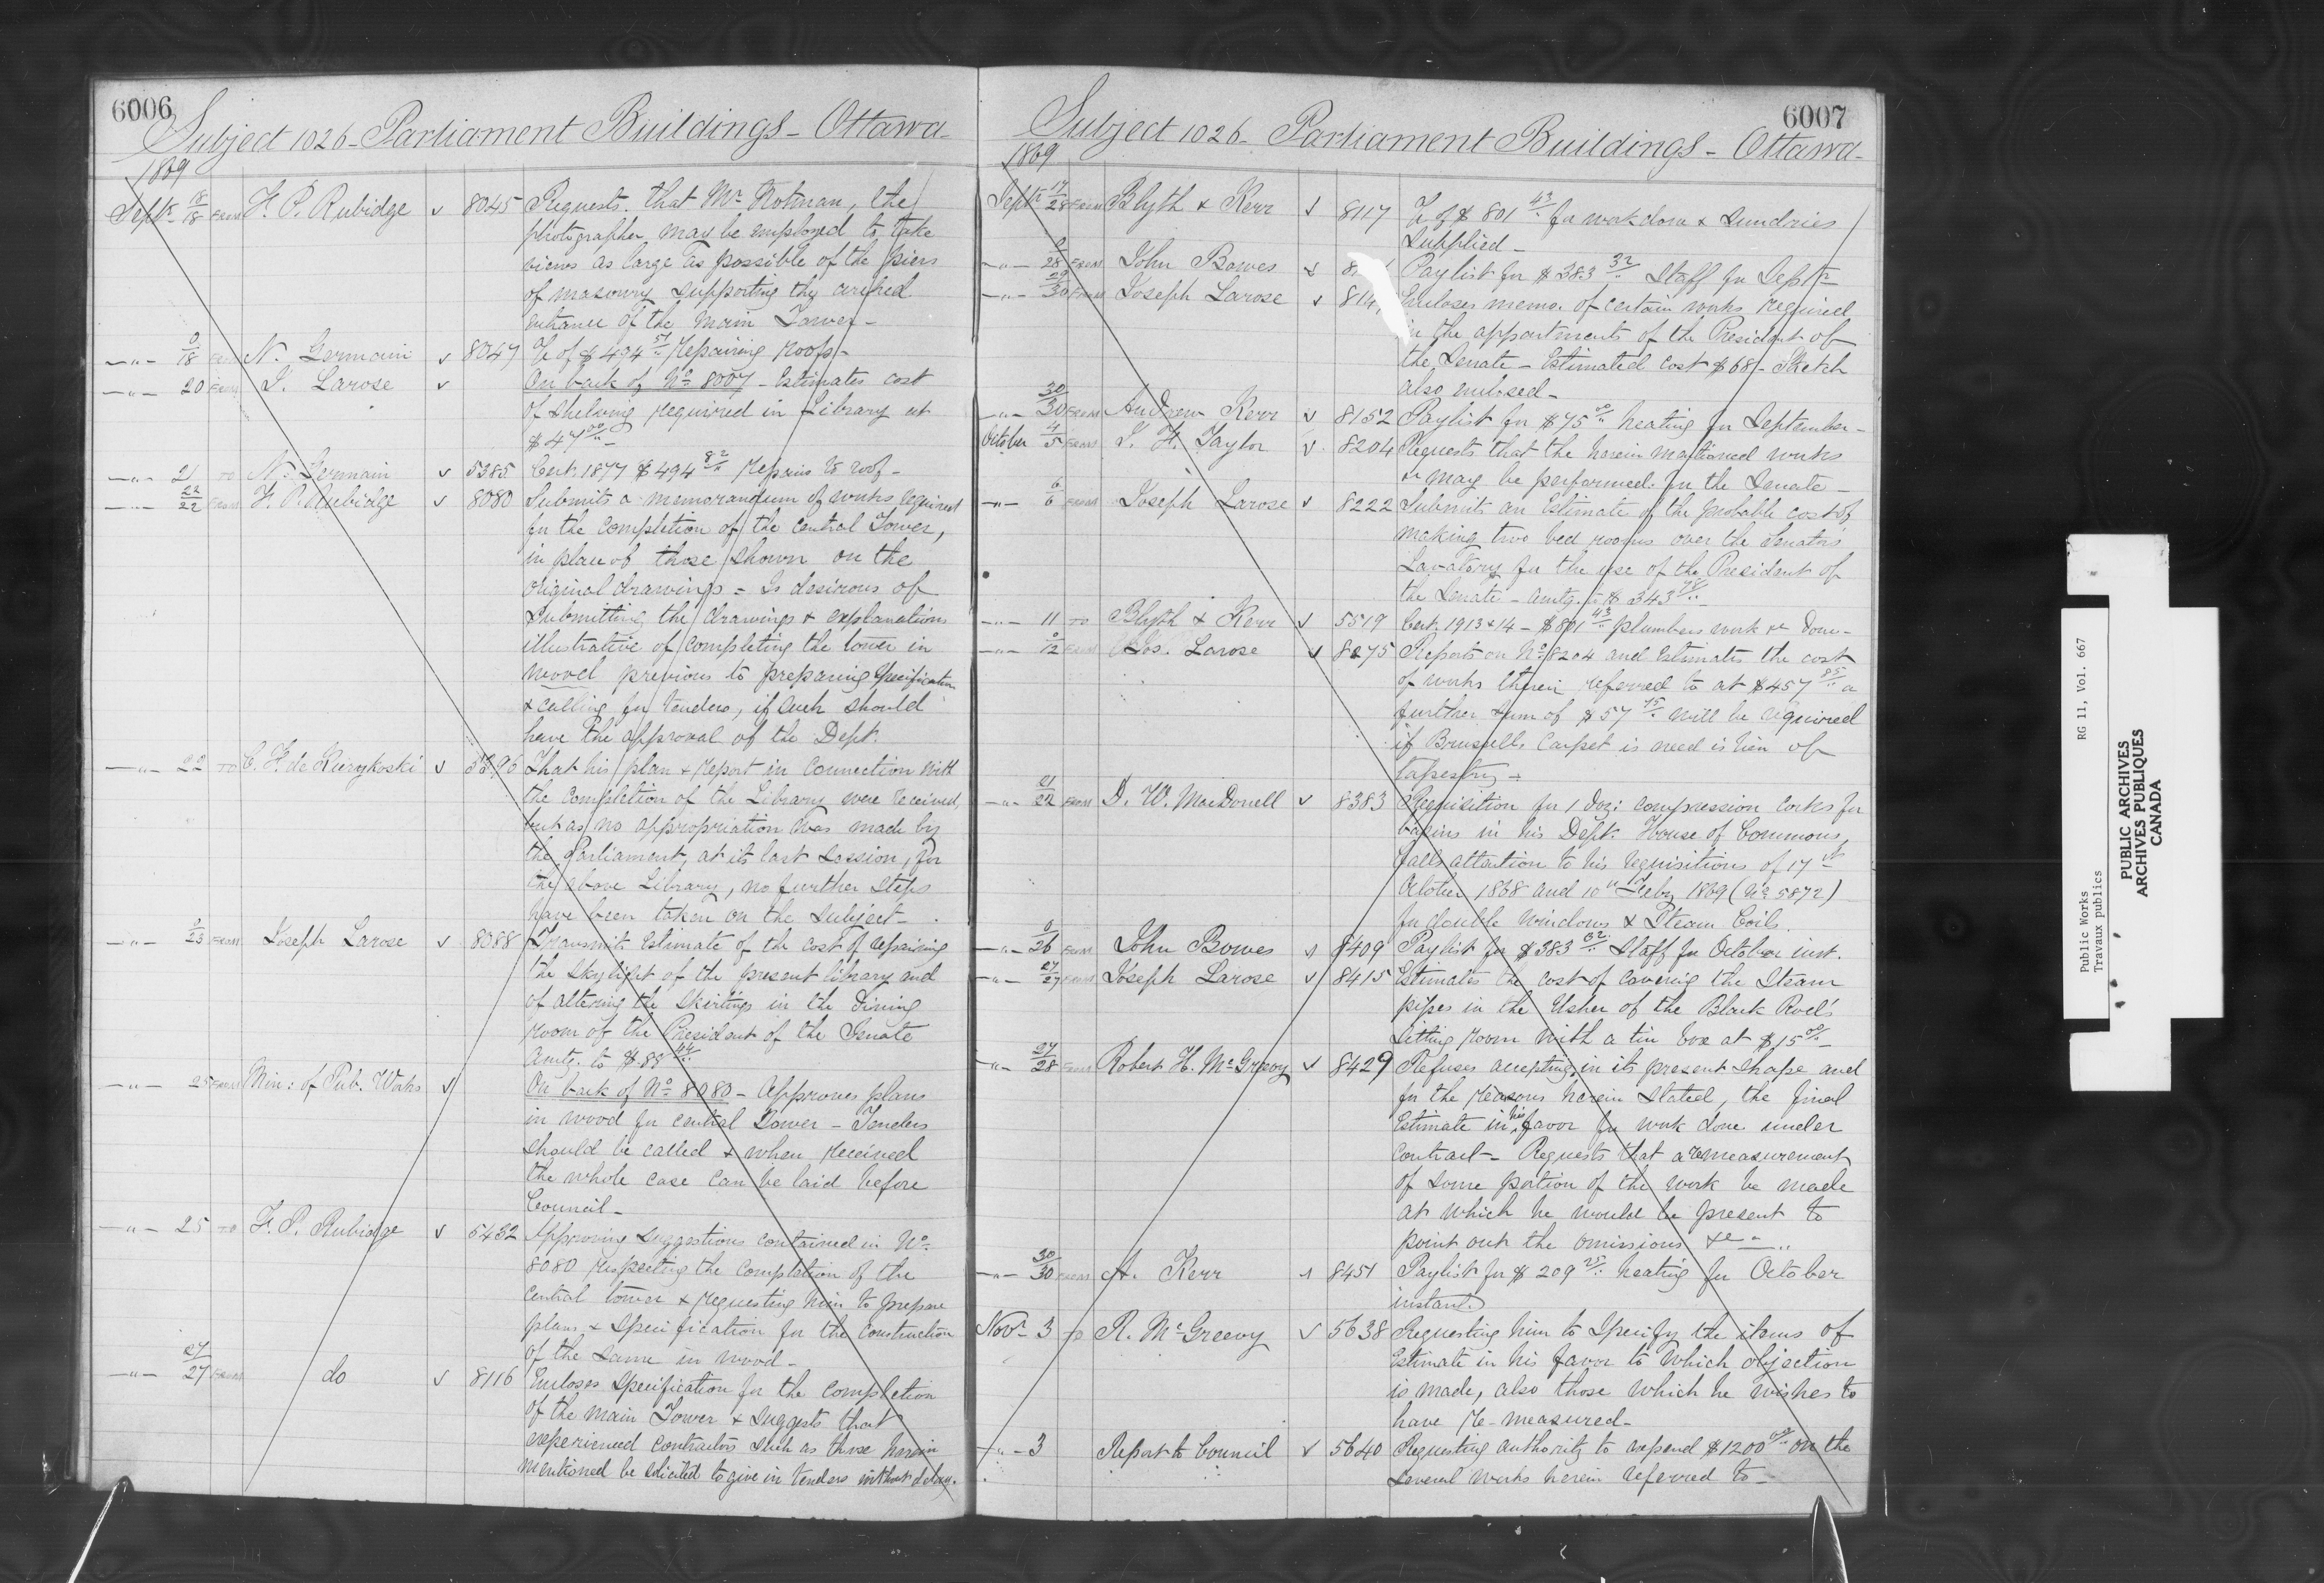 6006
Subject 1026 - Parliament Buildings - Ottawa -
1869
Sept. 18/18 From F. P. Rubidge v 8045 Requests that Mr. Notman, the
photographer may be employed to take
views as large as possible of the piers
of masonry supporting the arched
entrance of the Main Tower -
-"- 0/18 From N. Germain v 8047 % of $494 repairing roofs -
-"- 20 From J. Larose v On back of No. 8007 - Estimates cost
of shelving required in Library at
$47 00/..-
-"- 21 To N. Germain v 5385 Cert. 1877 $494 82/.. repairs to roof -
-"- 22/22 From F. P. Rubidge v 8080 Submits a memorandum of works required
for the completion of the Central Tower,
in place of those shown on the
original drawings - Is desirous of
submitting the drawings & explanations
illustrative of completing the tower in
wood previous to preparing specification
& calling for tenders, if such should
have the approval of the Dept.
-"- 22 To v That his plan & report in connection with
the completion of the Library were received,
but as no appropriation was made by
the Parliament, at its last session, for
the above Library, no further steps
have been taken on the subject -
-"- 0/23 From Joseph Larose v 8088 Transmits Estimate of the cost of repairing
the skylight of the present library and
of altering the skirtings in the Dining
room of the President of the Senate
amtg. to $88 44/..
-"- 25 From Min: of Pub. Works v On back of No. 8080 - Approves plans
in wood for central Tower - Tenders
should be called & when received
the whole case can be laid before
Council -
-"- 25 To F. P. Rubidge v 5432 Approving suggestions contained in No.
8080 respecting the Completion of the
Central tower & requesting him to prepare
plans & specification for the construction
of the same in wood -
-"- 27/27 From do v 8116 Encloses specification for the completion
of the main Tower & suggests that
experienced contractors such as those herein
mentioned be solicited to give in tenders without delay.
6007
Subject 1026 - Parliament Buildings - Ottawa -
1869
Sept. 17/28 From Blyth & Kerr v 8117 % of $801 43/.. for work done & sundries
supplied -
-"- 0/28 From John Bowes v Paylist for $383 32/.. Staff for Sept.
-"- 29/30 From Joseph Larose v Encloses memo. of certain works required
in the appartments of the President of
the Senate - Estimated cost $68/- Sketch
also enclosed -
-"- 30/30 From Andrew Kerr v 8152 Paylist for $75 00/.. heating for September -
October 4/5 From J. F. Taylor v 8204 Requests that the herein mentioned works
&c may be performed for the Senate -
-"- 6/6 From Joseph Larose v 8222 Submits an Estimate of the probable cost of
making two bed rooms over the Senators
Lavatory for the use of the President of
the Senate - amtg. to $343
-"- 11 To Blyth & Kerr v 5519 Cert. 1913 & 14 - $801 43/.. plumbers work &c done -
-"- 0/12 From Jos. Larose v 8275 Reports on No. 8204 and Estimates the cost
of works therein referred to at $457 85/.. a
further sum of $57 75/.. will be required
if Brussells Carpet is need is lieu of
tapestry -
-"- 21/22 From D. W. MacDonell v 8383 Requisition for 1 doz: compression cocks for
basins in his Dept. House of Commons,
Calls attention to his requisitions of 17th
October 1868 and 10th Feby 1869 (No. 5872)
for double windows & Steam Coils.
-"- 0/26 From John Bowes v 8409 Paylist for $383 Staff for October inst.
-"- 27/27 From Joseph Larose v 8415 Estimates the cost of covering the Steam
pipes in the Usher of the Black Rod's
sitting room with a tin box at $15 00/..-
-"- 27/28 From Robert H. McGreevy v 8429 Refuses accepting in its present shape and
for the reasons herein stated, the final
Estimate in his favor for work done under
contract - Requests that a remeasurement
of some portion of the work be made
at which he would be present to
point out the omissions &c -
-"- 30/30 From A. Kerr v 8451 Paylist for $209 25/.. heating for October
instant.
Novr. 3 To R. McGreevy v 5638 Requesting him to specify the items of
Estimate in his favor to which objection
is made, also those which he wishes to
have re-measured -
-"- 3 Report to Council v 5640 Requesting authority to expend $1200 00/.. on the
several works herein referred to -
Public Works RG 11, Vol. 667
Travaux publics
PUBLIC ARCHIVES
ARCHIVES PUBLIQUES
CANADA